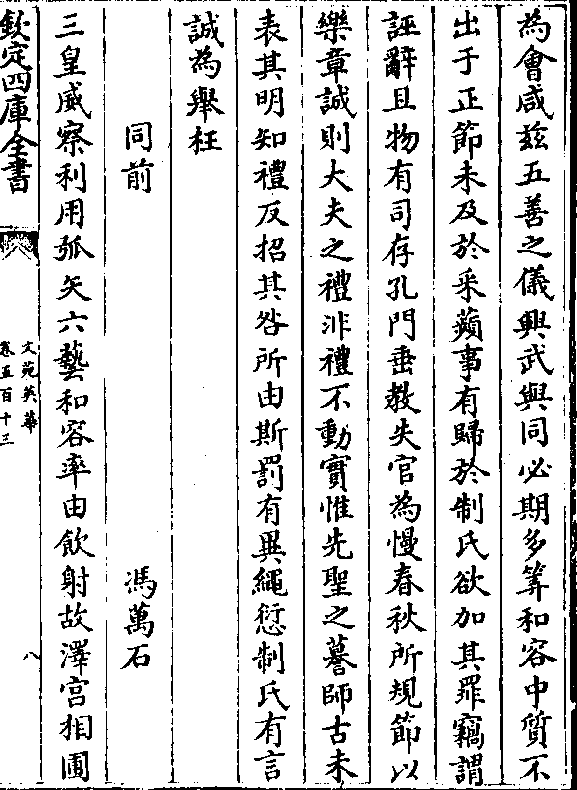 為會咸兹五善之儀興武與同必期多筭和容中質不
出于正節未及於采蘋事有歸於制氏欲加其罪竊謂
誣辭且物有司存孔門垂教失官為慢春秋所規節以
樂章誠則大夫之禮非禮不動實惟先聖之謩師古未
表其明知禮反招其咎所由斯罰有異繩愆制氏有言
誠為舉枉
同前　馮萬石
三皇威察利用弧矢六藝和容率由飲射故澤宫相圃
欽定四庫全書
文苑英華
卷五百十三
八